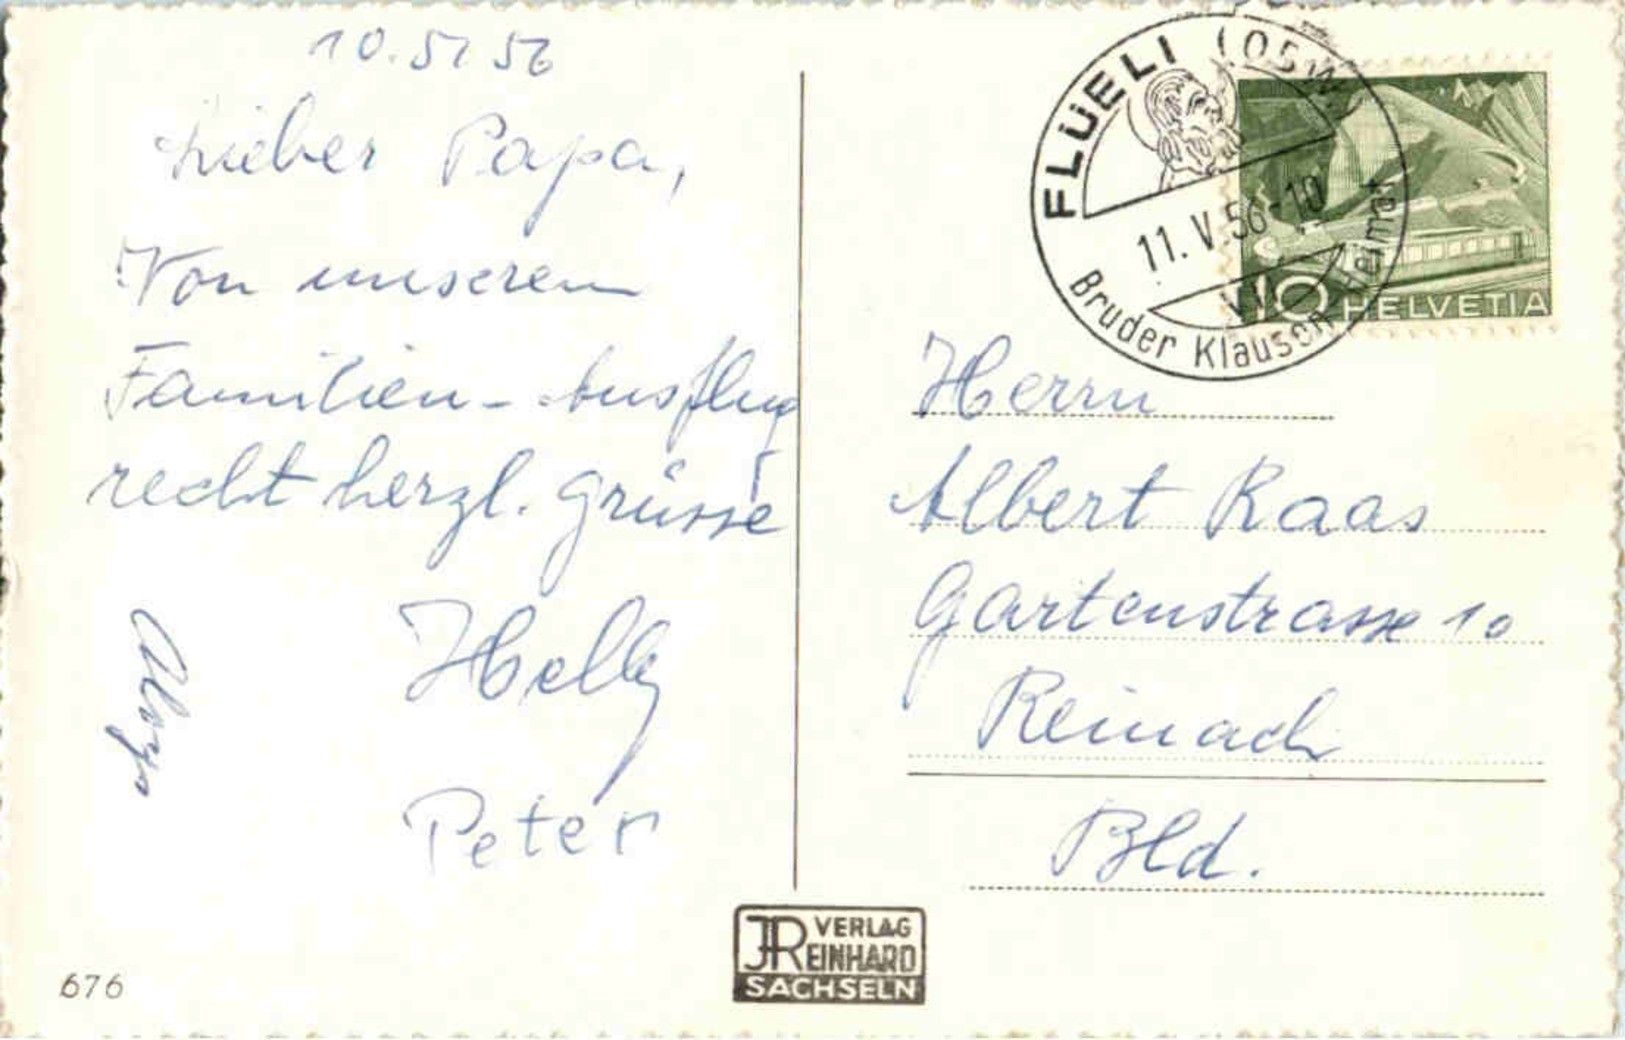 10. 5. 56
Lieber Papa,
Von unserem
Familien-Ausflug
recht herzl. Grüsse
Helly
Peter
676
FLÜELI (OBW.)
11. V. 56-10
VI
Bruder Klausen Heimat
10 HELVETIA
Herrn
Albert Raas
Gartenstrasse 10
Reinach
Bld.
JR VERLAG
REINHARD
SACHSELN